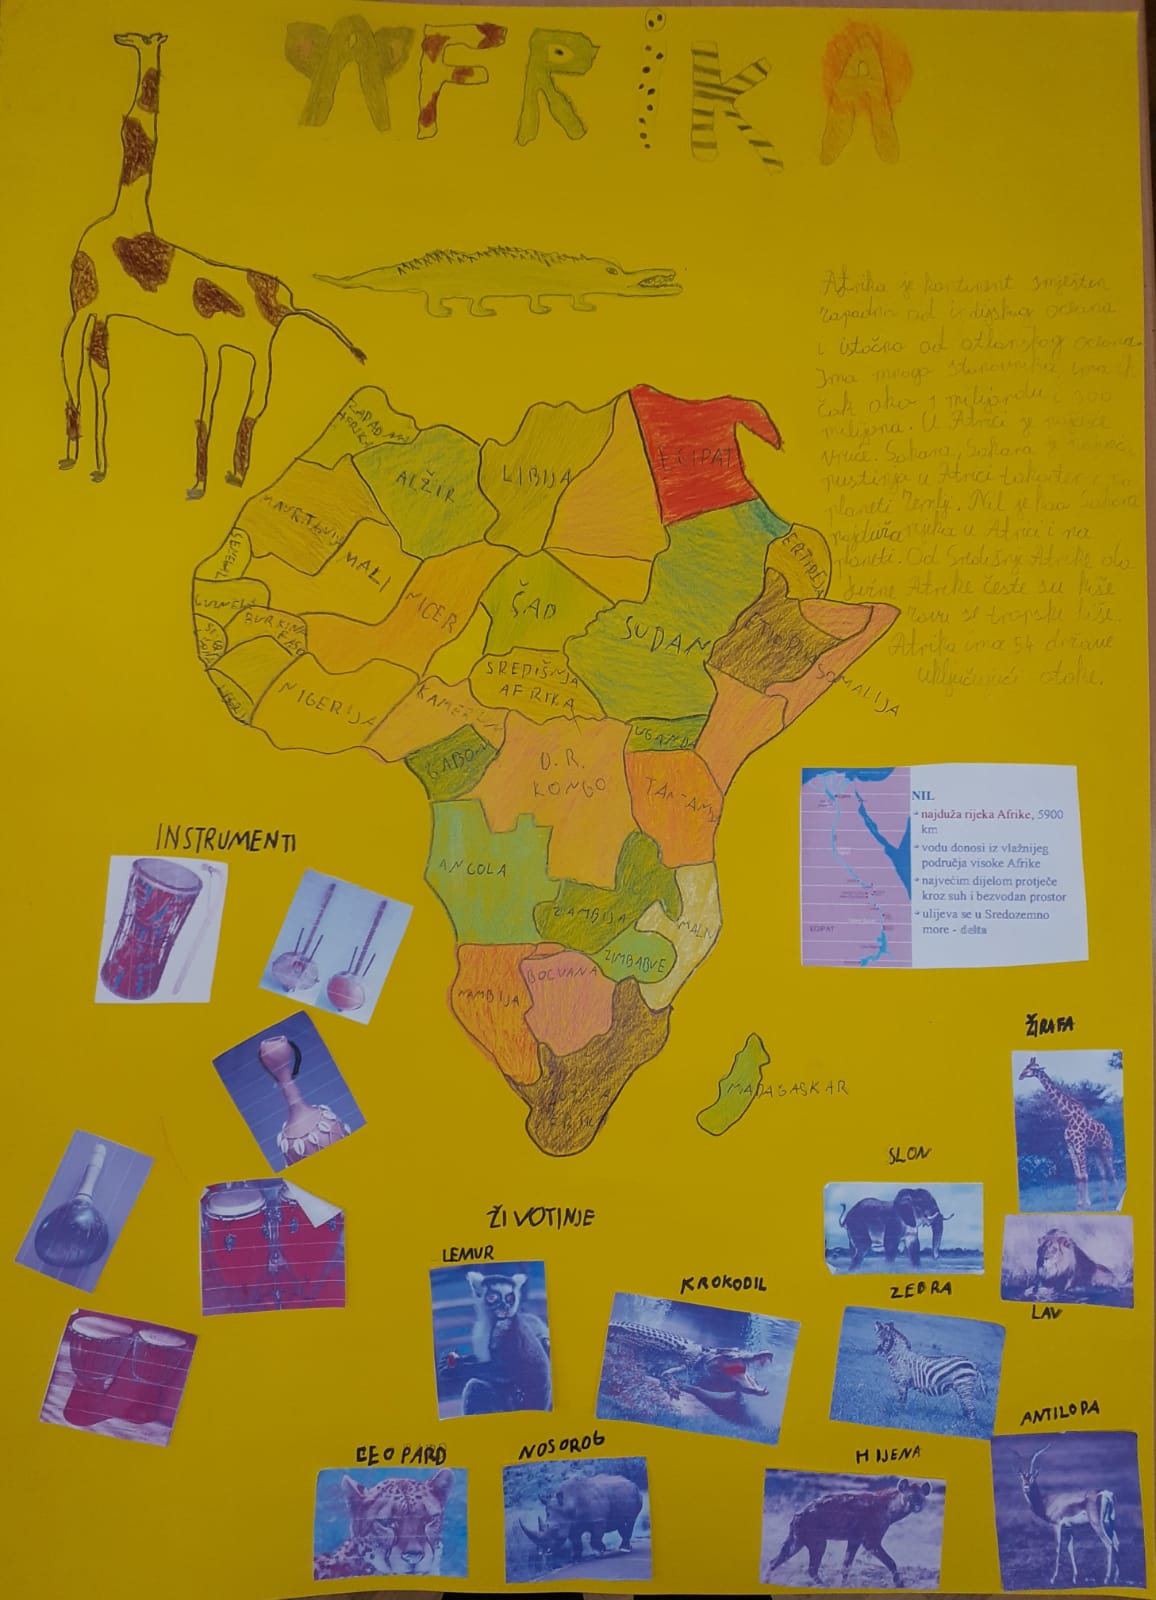 AFRIKA
Afrika je kontinent smješten
zapadno od indijskog oceana
i istočno od atlanskog oceana.
Ima mnogo stanovnika, ima ih
čak oko 1 milijardu i 300
milijona. U Africi je najčešće
vruće. Sahara, Sahara je najveća
pustinja u Africi također i na
planeti Zemlji. Nil je kao Sahara
najduža rijeka u Africi i na
planeti. Od Središnje Afrike do
Južne Afrike česte su kiše
zovu se tropske kiše.
Afrika ima 54 države
uključujući otoke.
ZAPADNA
ALŽIR
LIBIJA
EGIPAT
MALI
NIGER
ČAD
SUDAN
ERITREJA
ETIOPIJA
SOMALIJA
SENEGAL
BURKINA
FASO
NIGERIJA
KAMERUN
SREDIŠNJA
AFRIKA
GABON
D.R.
KONGO
UGANDA
ANGOLA
ZAMBIJA
MALAVI
ZIMBABVE
NAMBIJA
BOCVANA
JUŽNA
AFRIKA
MADAGASKAR
NIL
najduža rijeka Afrike, 5900
km
vodu donosi iz vlažnijeg
područja visoke Afrike
najvećim dijelom protječe
kroz suh i bezvodan prostor
ulijeva se u Sredozemno
more - delta
EGIPAT
INSTRUMENTI
ŽIVOTINJE
LEMUR
KROKODIL
SLON
ŽIRAFA
ZEBRA
LAV
LEOPARD
NOSOROG
HIJENA
ANTILOPA